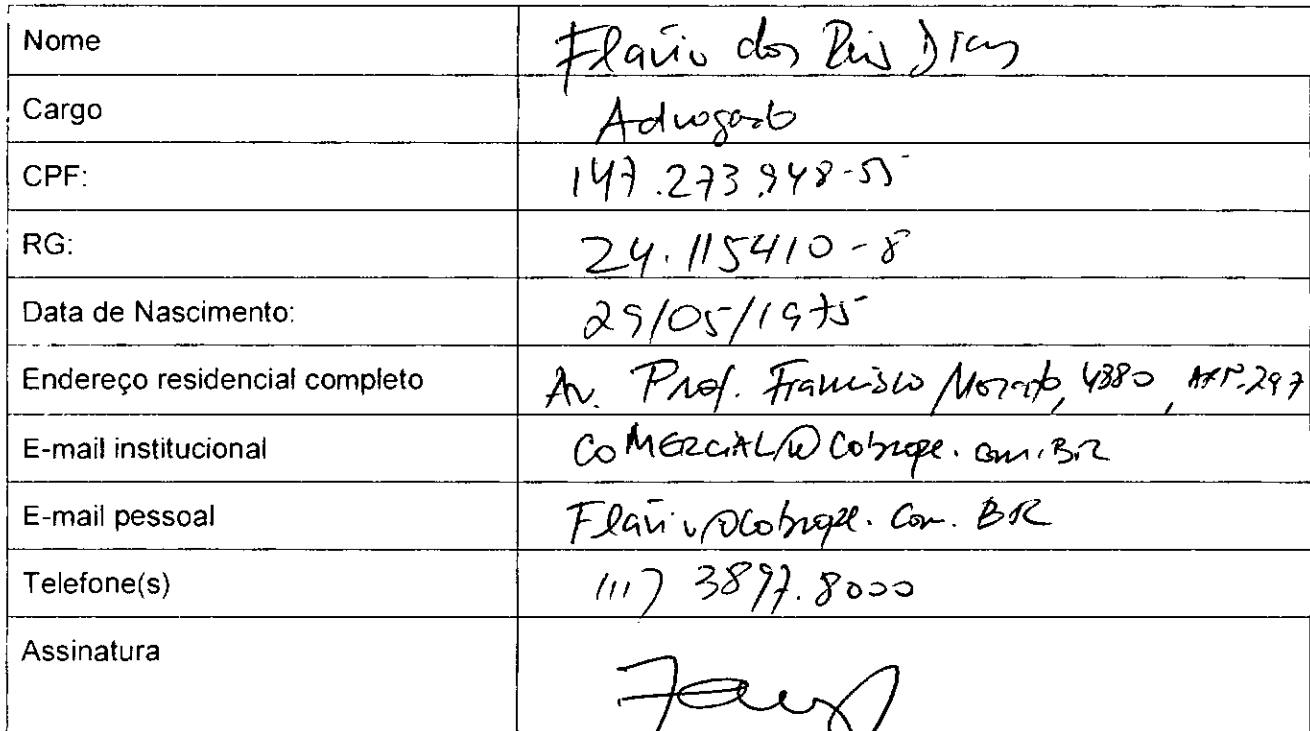 Nome Flávio dos Reis Dias
Cargo Advogado
CPF: 147.273.948-55
RG: 24.115410-8
Data de Nascimento: 29/05/1975
Endereço residencial completo Av. Prof. Francisco Morato, 4880, 297
E-mail institucional COMERCIAL@Cobrape.com.BR
E-mail pessoal Flávio@Cobrape.Com.BR
Telefone(s) (11) 3897.8000
Assinatura